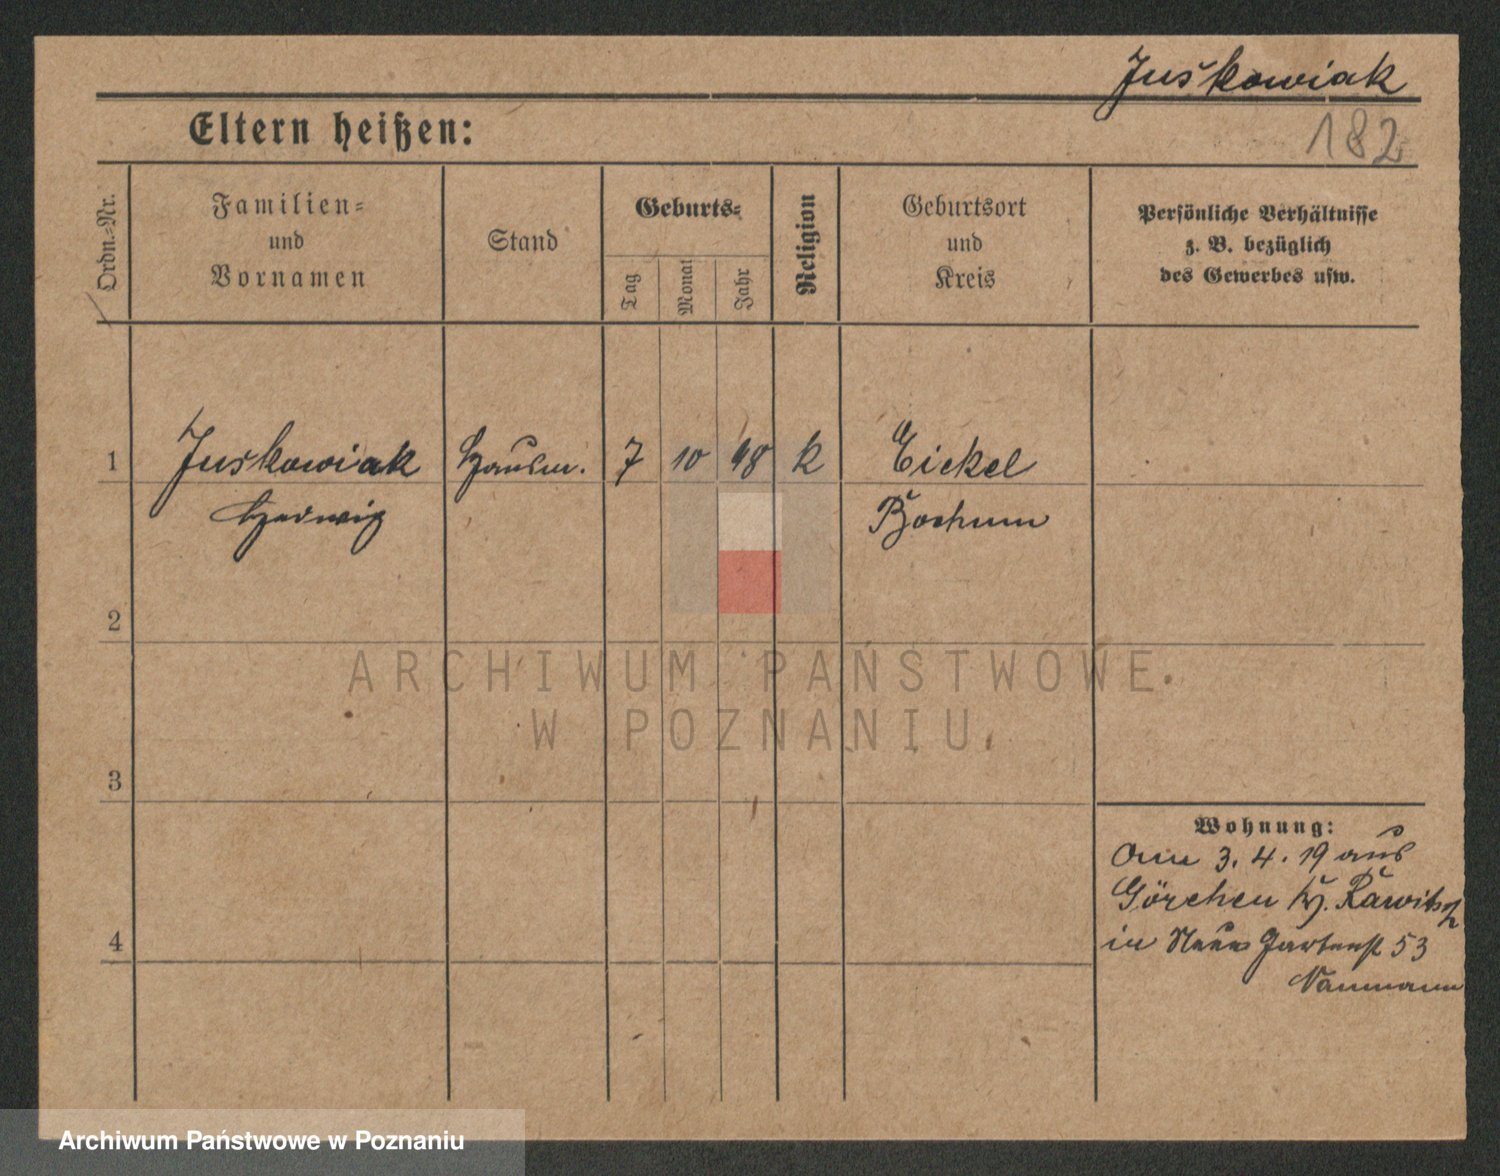 Juškowiak
182
Eltern heißen:
Ordn.-Nr.
Familien-
und
Vornamen
Stand
Geburts-
Tag
Monat
Jahr
Religion
Geburtsort
und
Kreis
Persönliche Verhältnisse
z. B. bezüglich
des Gewerbes usw.
1
Juskowiak
Hausm.
7
10
98
k
Eickel
Hedwig
Bochum
2
3
4
ARCHIWUM PAŃSTWOWE
W POZNANIU
Wohnung:
Am 3. 4. 19 aus
Görchen Kr. Rawitsch
in Neue Gartenst 53
Naumann
Archiwum Państwowe w Poznaniu